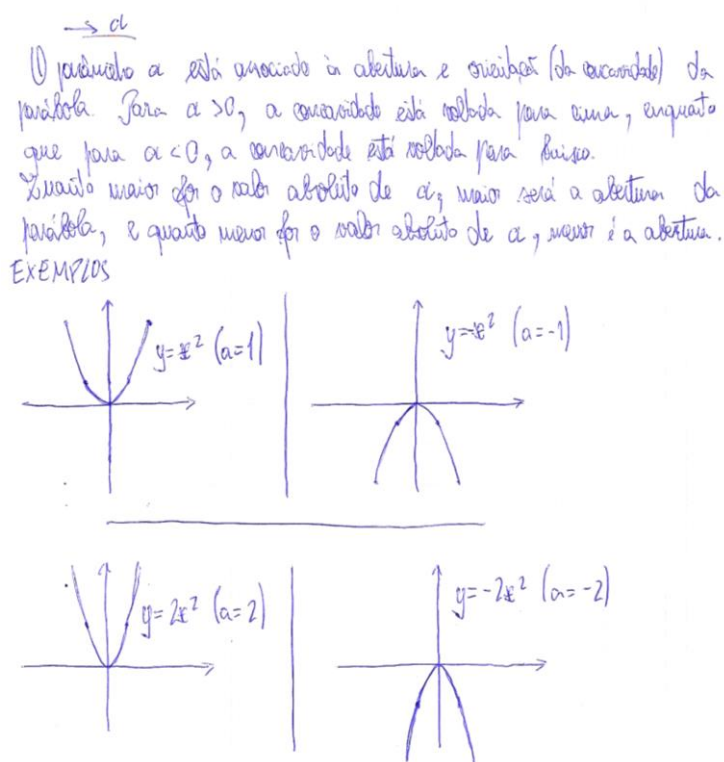 → a
O parâmetro a está associado à abertura e orientação (da concavidade) da
parábola. Para a >0, a concavidade está voltada para cima, enquanto
que para a <0, a concavidade está voltada para baixo.
Quanto maior for o valor absoluto de a, maior será a abertura da
parábola, e quanto menor for o valor absoluto de a, menor é a abertura.
EXEMPLOS
y=x² (a=1)
y=-x² (a=-1)
y=2x² (a=2)
y=-2x² (a=-2)